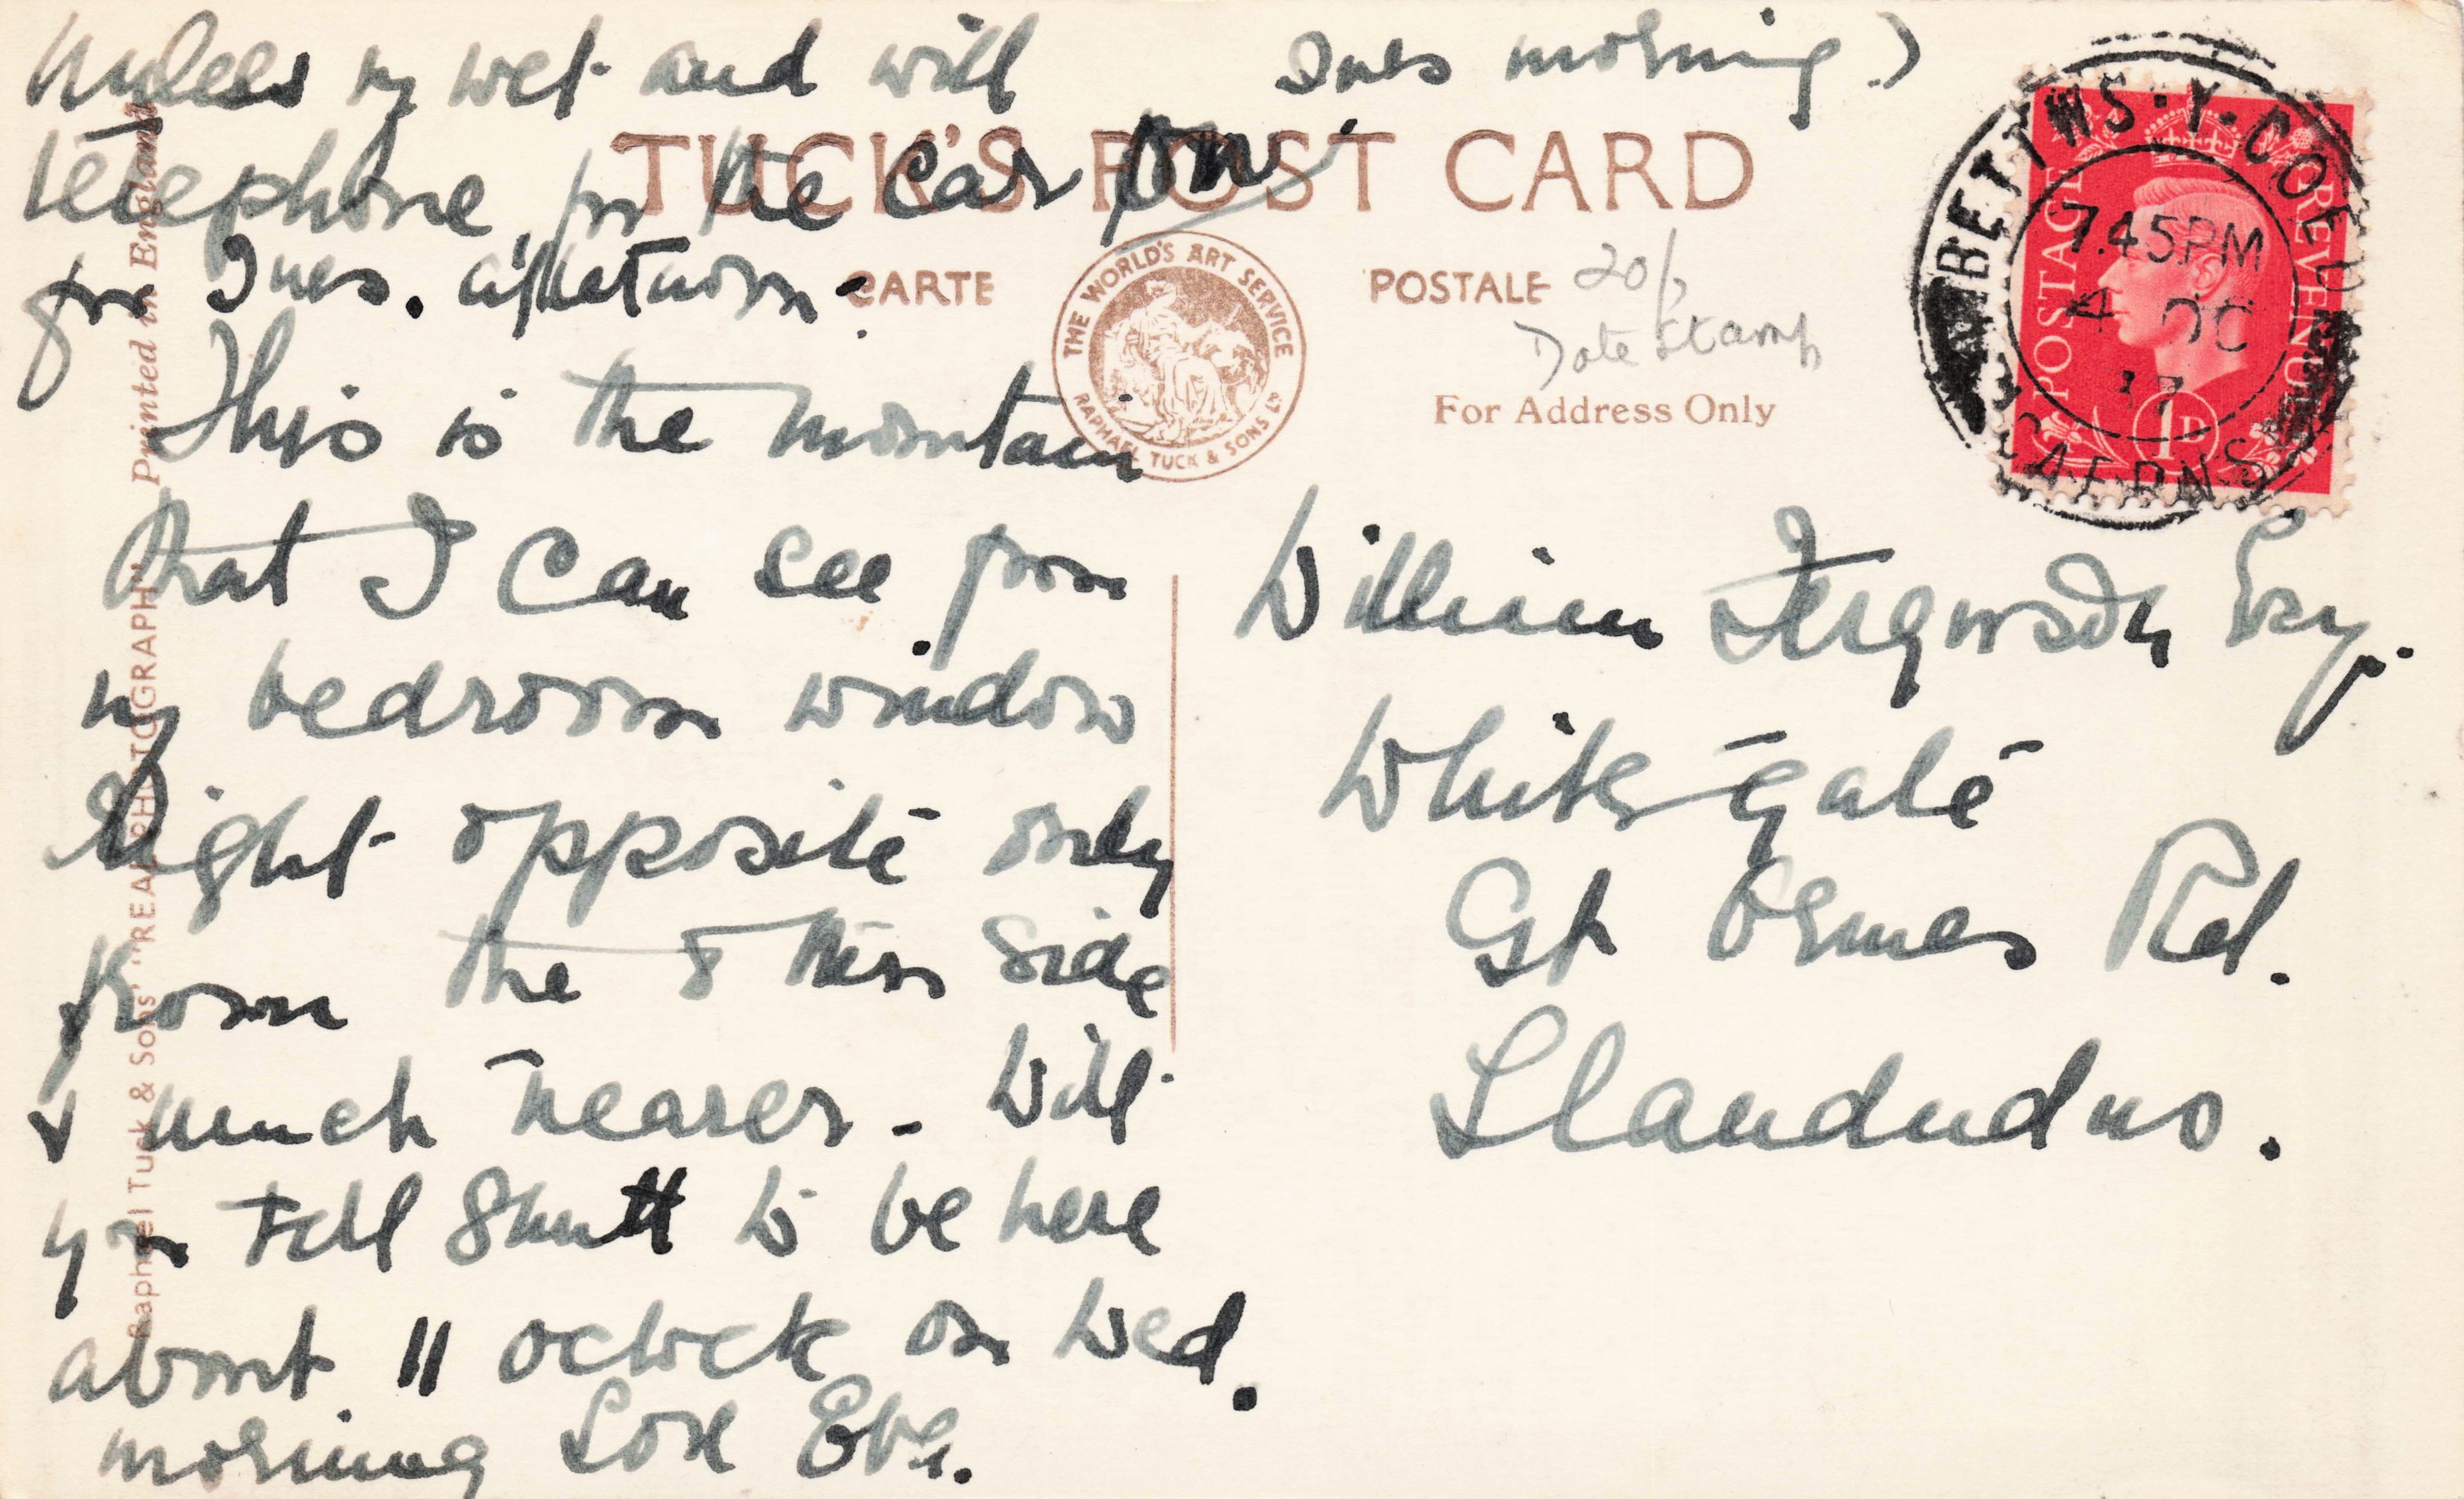 Unless vy wet and will
Tues morning.)
telephone for the car on
for Tues. afternoon.
This is the mountain
that I can see from
my bedroom window
Right opposite only
from the other side
& much nearer. Will
you tell Shutt to be here
about 11 oclock on Wed.
morning Love Eve.
TUCK'S POST CARD
CARTE
POSTALE
THE WORLD'S ART SERVICE
RAPHAEL TUCK & SONS LD
20/
Date stamp
For Address Only
BETTWS-Y-COED
7.45PM
4 OC
37
CAERNS
POSTAGE
REVENUE
1D
William Ferguson Esq.
White gate
Gt Ormes Rd.
Llandudno.
Raphael Tuck & Sons' "REAL PHOTOGRAPH" Printed in England